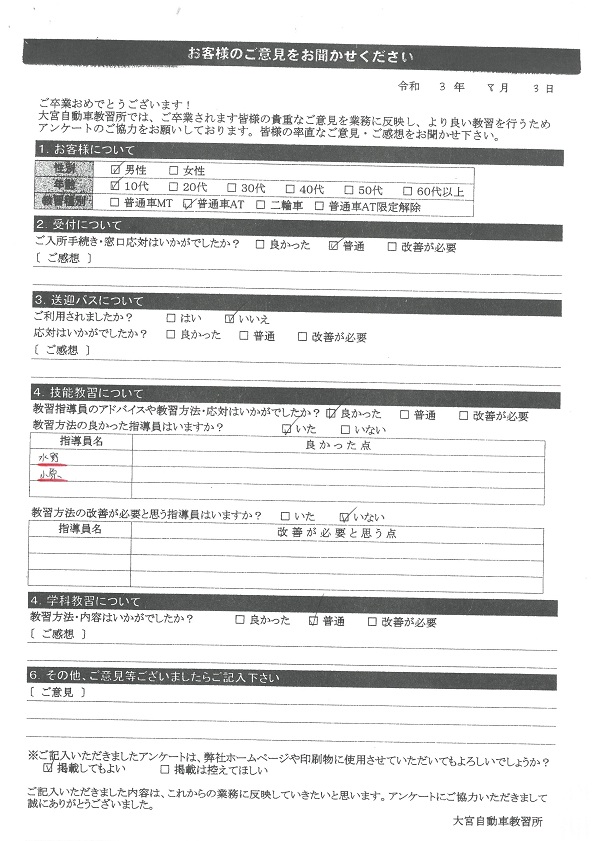 お客様のご意見をお聞かせください
令和 3 年 8 月 3 日
ご卒業おめでとうございます！
大宮自動車教習所では、ご卒業されます皆様の貴重なご意見を業務に反映し、より良い教習を行うため
アンケートのご協力をお願いしております。皆様の率直なご意見・ご感想をお聞かせ下さい。
1. お客様について
性別 ☑男性 □女性
年齢 ☑10代 □20代 □30代 □40代 □50代 □60代以上
教習種別 □普通車MT ☑普通車AT □二輪車 □普通車AT限定解除
2. 受付について
ご入所手続き・窓口応対はいかがでしたか？ □良かった ☑普通 □改善が必要
〔 ご感想 〕
3. 送迎バスについて
ご利用されましたか？ □はい ☑いいえ
応対はいかがでしたか？ □良かった □普通 □改善が必要
〔 ご感想 〕
4. 技能教習について
教習指導員のアドバイスや教習方法・応対はいかがでしたか？ ☑良かった □普通 □改善が必要
教習方法の良かった指導員はいますか？ ☑いた □いない
指導員名 良かった点
水野
教習方法の改善が必要と思う指導員はいますか？ □いた ☑いない
指導員名 改善が必要と思う点
4. 学科教習について
教習方法・内容はいかがでしたか？ □良かった ☑普通 □改善が必要
〔 ご感想 〕
6. その他、ご意見等ございましたらご記入下さい
〔 ご意見 〕
※ご記入いただきましたアンケートは、弊社ホームページや印刷物に使用させていただいてもよろしいでしょうか？
☑掲載してもよい □掲載は控えてほしい
ご記入いただきました内容は、これからの業務に反映していきたいと思います。アンケートにご協力いただきまして
誠にありがとうございました。
大宮自動車教習所